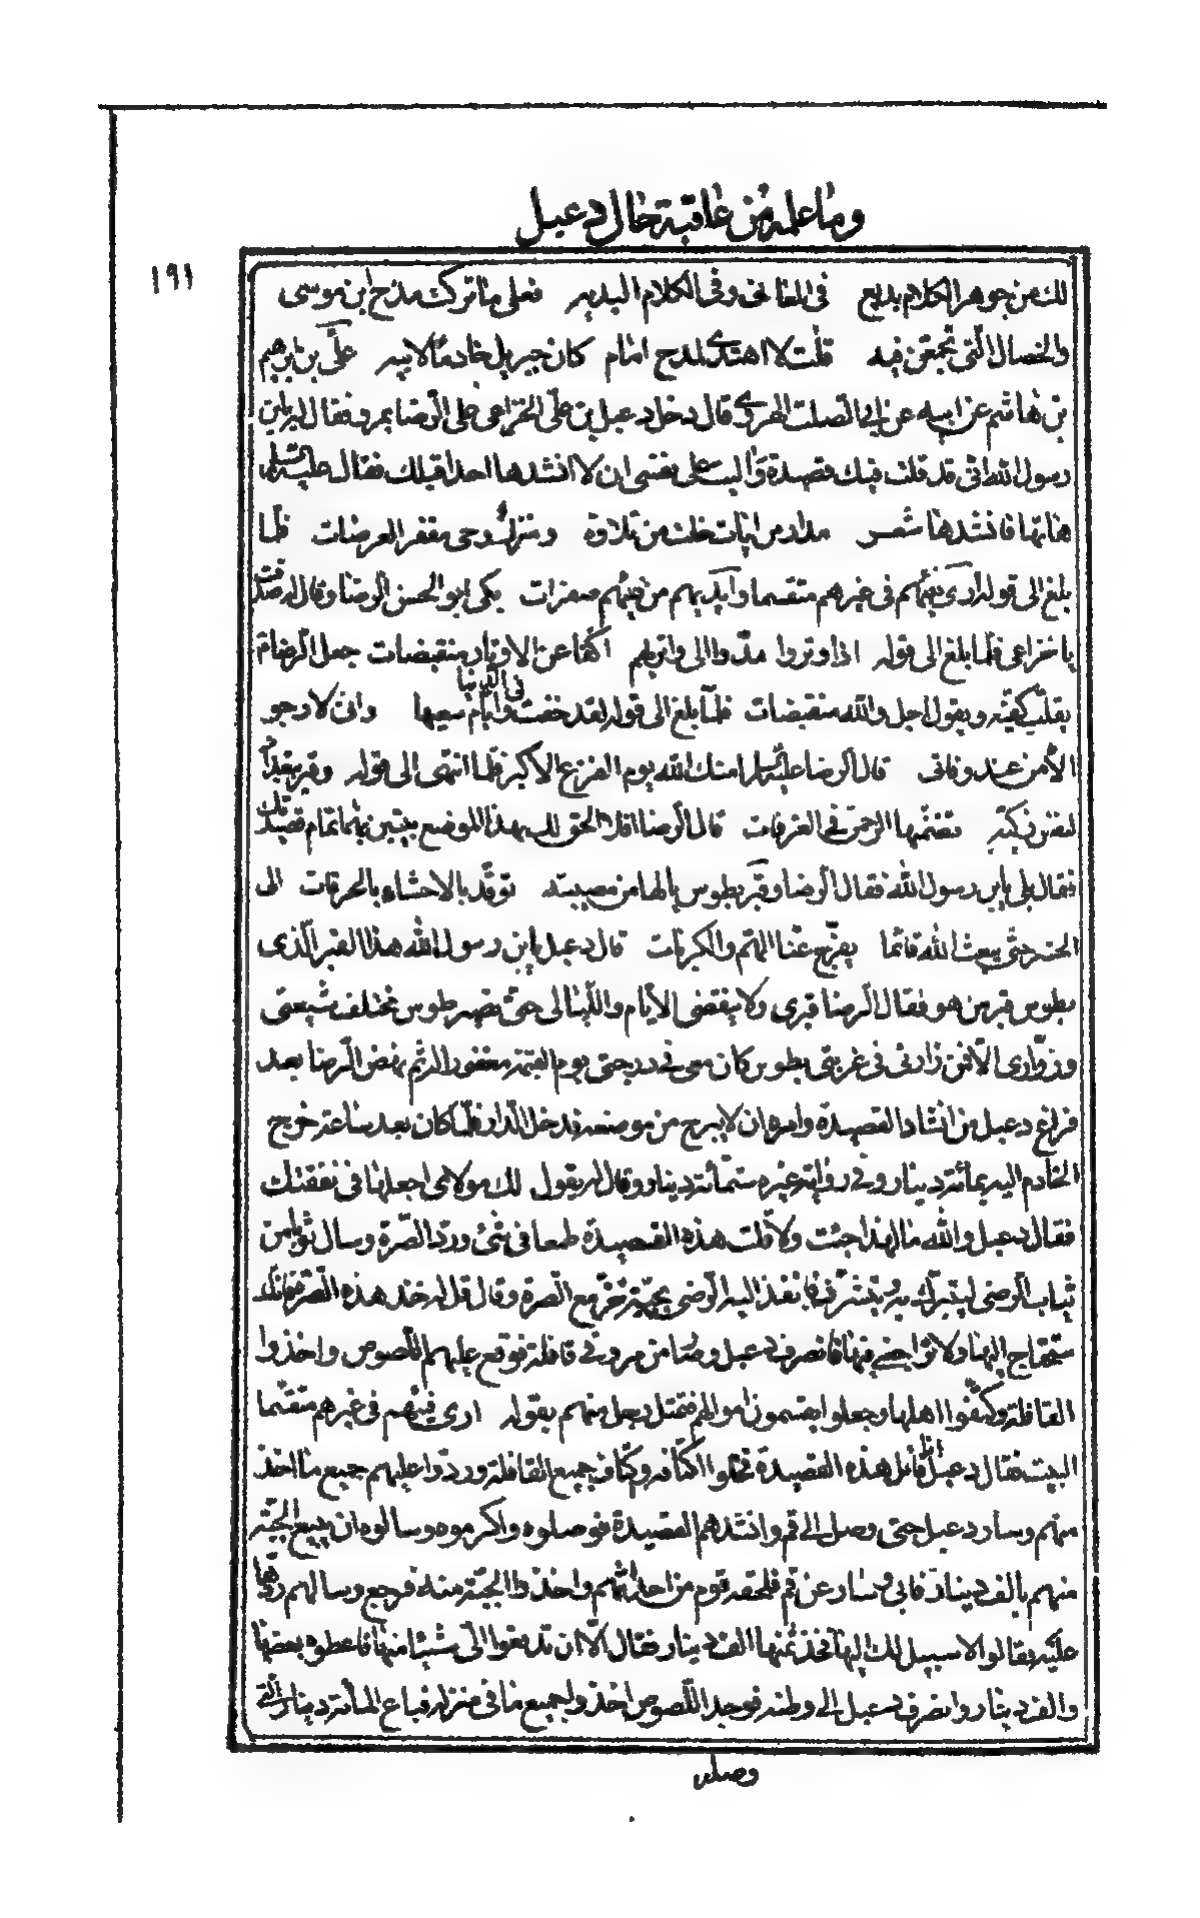 وما علمه من عاقبة حال دعبل
١٩١
لك من جوهر الكلام بديع في المعاني وفي الكلام البديه فعلى ما تركت مدح ابن موسى
والخصال التي تجمعن فيه قلت لا اهتدى لمدح امام كان جبريل خادما لابيه علي بن ابرهيم
بن هاشم عن ابيه عن ابي الصلت الهروي قال دخل دعبل بن علي الخزاعي على الرضا بمرو فقال له يابن
رسول الله اني قد قلت فيك قصيدة واليت على نفسي ان لا انشدها احدا قبلك فقال عليه السلم
هاتها فانشدها شعر مدارس ايات خلت من تلاوة ومنزل وحي مقفر العرصات فلما
بلغ الى قوله ارى فيئهم في غيرهم متقسما وايديهم من فيئهم صفرات بكى ابو الحسن الرضا وقال له صدقت
يا خزاعي فلما بلغ الى قوله اذا وتروا مدوا الى واتريهم اكفا عن الاوتار منقبضات جعل الرضا ع
يقلب كفيه ويقول اجل والله منقبضات فلما بلغ الى قوله لقد خفت في الدنيا وايام سعيها واني لارجو
الامن عند وفاتي قال الرضا عليه السلم امنك الله يوم الفزع الاكبر فلما انتهى الى قوله وقبر ببغداد
لنفس زكية تضمنها الرحمن في الغرفات قال الرضا افلا الحق لك بهذا الموضع بيتين بهما تمام قصيدتك
فقال بلى يابن رسول الله فقال الرضا وقبر بطوس يا لها من مصيبة توقد بالاحشاء بالحرقات الى
الحشر حتى يبعث الله قائما يفرج عنا الهم والكربات قال دعبل يابن رسول الله هذا القبر الذي
بطوس قبر من هو فقال الرضا قبري ولا ينقضي الايام والليالي حتى تصير طوس مختلف شيعتي
وزواري الا فمن زارني في غربتي بطوس كان معي في درجتي يوم القيمة مغفورا له ثم نهض الرضا بعد
فراغ دعبل من انشاد القصيدة وامره ان لا يبرح من موضعه فدخل الدار فلما كان بعد ساعة خرج
الخادم اليه بمائة دينار وفي رواية غيره ستمائة دينار وقال له يقول لك مولاي اجعلها في نفقتك
فقال دعبل والله ما لهذا جئت ولا قلت هذه القصيدة طمعا في شئ ورد الصرة وسال ثوبا من
ثياب الرضى ليتبرك به ويتشرف فانفذ اليه الرضى بجبة خز مع الصرة وقال قل له خذ هذه الصرة فانك
ستحتاج اليها ولا تراجعني فيها فانصرف دعبل وصار من مرو في قافلة فوقع عليهم اللصوص واخذوا
القافلة وكتفوا اهلها وجعلوا يقسمون اموالهم فتمثل رجل منهم بقوله ارى فيئهم في غيرهم متقسما
البيت فقال دعبل انا قائل هذه القصيدة فحلوا اكتافه وكتاف جميع القافلة وردوا عليهم جميع ما اخذ
منهم وسار دعبل حتى وصل الى قم وانشدهم القصيدة فوصلوه واكرموه وسالوه ان يبيع الجبة
منهم بالف دينار فابى وسار عن قم فلحقه قوم من احداثهم واخذوا الجبة منه فرجع وسالهم ردها
عليه فقالوا لا سبيل لك اليها فخذ ثمنها الف دينار فقال لا الا ان تدفعوا الى شيئا منها فاعطوه بعضها
والف دينار وانصرف دعبل الى وطنه فوجد اللصوص اخذوا جميع ما في منزله فباع المائة دينار التي
وصله